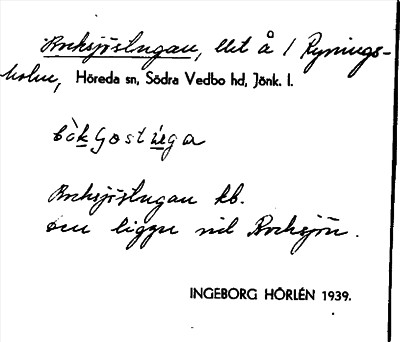 Bocksjöstugan, ebt å 1 Rynings-
holm, Höreda sn, Södra Vedbo hd, Jönk. l.
Bocksjöstugan kb.
som ligger vid Bocksjön.
INGEBORG HÖRLÉN 1939.